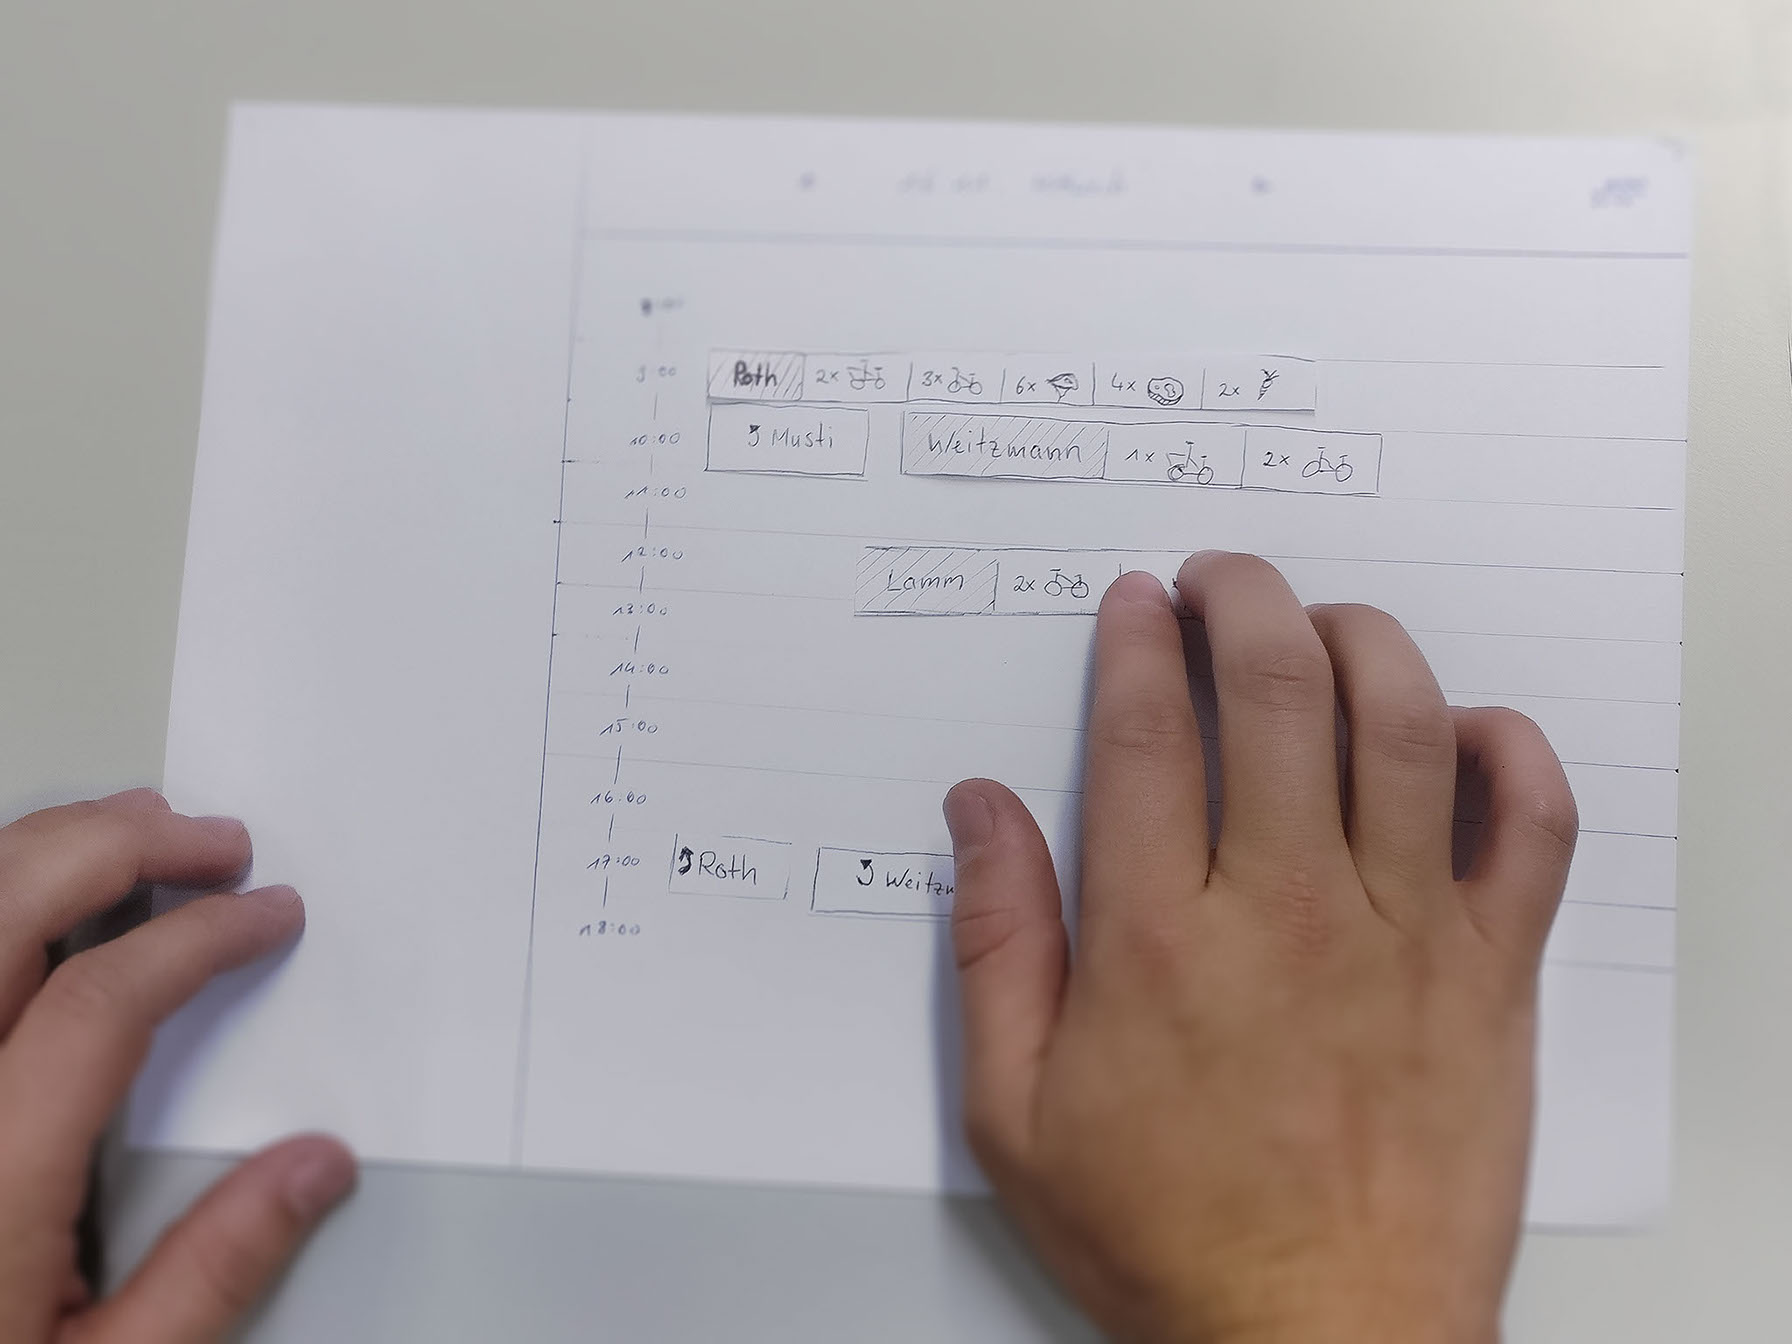 9:00 Roth 2x 3x 6x 4x 2x
10:00 Musti Weitzmann 1x 2x
11:00
12:00 Lamm 2x
13:00
14:00
15:00
16:00
17:00 Roth
18:00